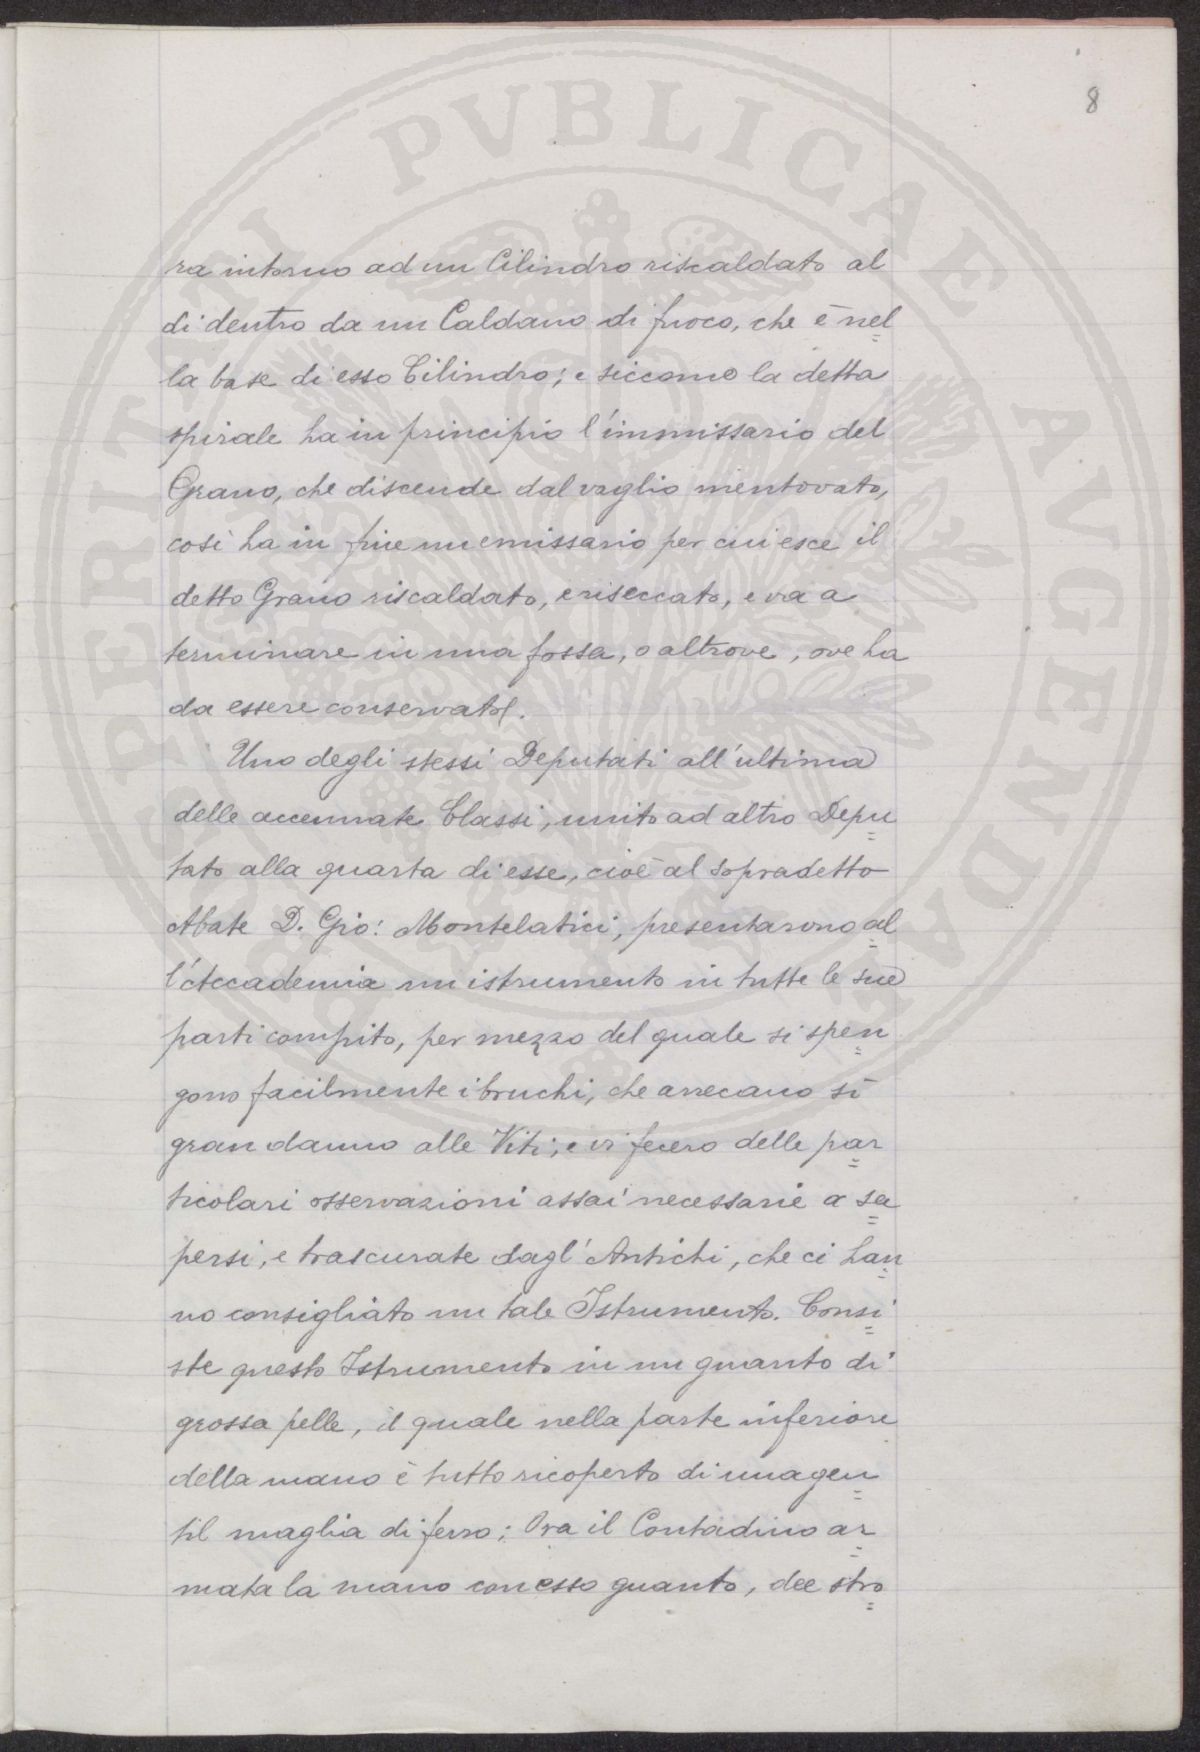 8
ra intorno ad un Cilindro riscaldato al
di dentro da un Caldano di fuoco, che è nel=
la base di esso Cilindro; e siccome la detta
spirale ha in principio l'immissario del
Grano, che discende dal vaglio mentovato,
così ha in fine un emissario per cui esce il
detto Grano riscaldato, e riseccato, e va a
terminare in una fossa, o altrove, ove ha
da essere conservato.
Uno degli stessi Deputati all'ultima
delle accennate Classi, unito ad altro Depu=
tato alla quarta di esse, cioè al sopradetto
Abate D. Gio: Montelatici, presentarono al=
l'Accademia un istrumento in tutte le sue
parti compito, per mezzo del quale si spen=
gono facilmente i bruchi, che arrecano sì
gran danno alle Viti; e vi fecero delle par=
ticolari osservazioni assai necessarie a sa=
persi, e trascurate dagl'Antichi, che ci han=
no consigliato un tale Istrumento. Consi=
ste questo Istrumento in un guanto di
grossa pelle, il quale nella parte inferiore
della mano è tutto ricoperto di una gen=
til maglia di ferro; Ora il Contadino ar=
mata la mano con esso guanto, dee stro=
PROSPERITATI PVBLICAE AVGENDAE